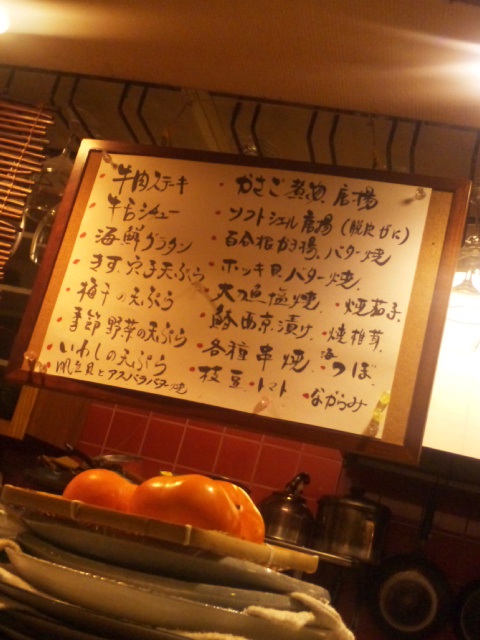 ・牛肉ステキ
・牛舌シチュー
・海鮮グラタン
・きす、穴子天ぷら
・梅干の天ぷら
・季節野菜の天ぷら
・いわしの天ぷら
帆立貝とアスパラバター焼
・かさご煮魚、唐揚
・ソフトシェル唐揚（脱皮がに）
・百合根かき揚、バター焼
・ホッキ貝バター焼
・大、塩焼 ・焼茄子
・西京漬け ・焼椎茸
・各種串焼 ・海つぼ
・枝豆 ・トマト ・ながらみ